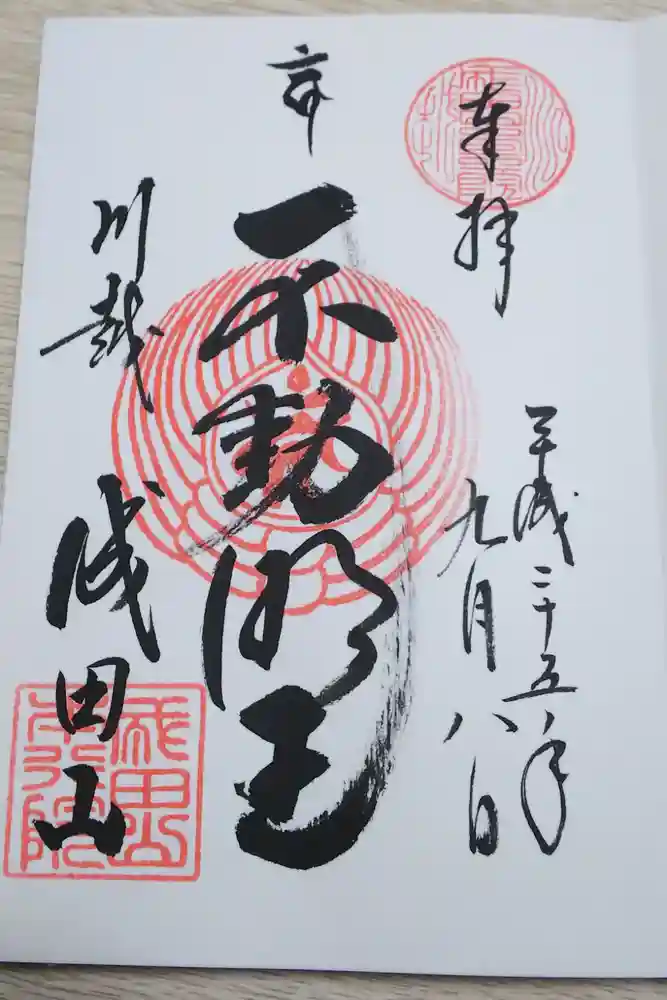 奉拝
平成二十五年
九月八日
不動明王
川越 成田山
成田山
本行院